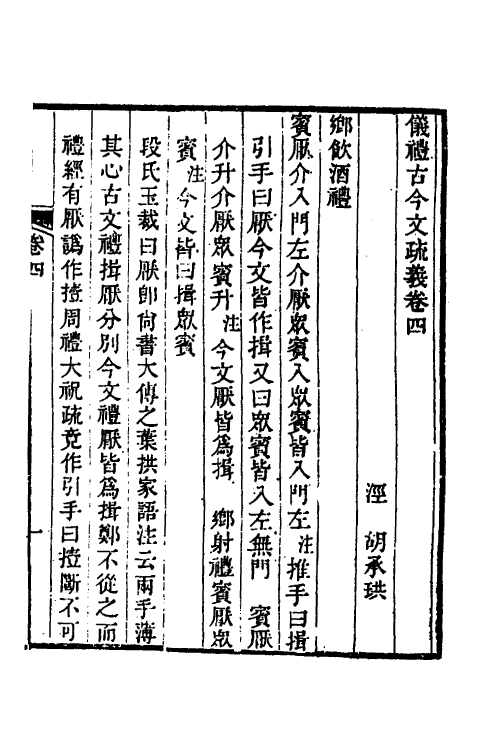 儀禮古今文疏義卷四
涇　胡承珙
鄉飲酒禮
賓厭介入門左介厭眾賓入眾賓皆入門左注推手曰揖
引手曰厭今文皆作揖又曰眾賓皆入左無門　賓厭
介升介厭眾賓升注今文厭皆爲揖　鄉射禮賓厭眾
賓注今文皆曰揖眾賓
段氏玉裁曰厭卽尙書大傳之葉拱家語注云兩手薄
其心古文禮揖厭分別今文禮厭皆爲揖鄭不從之而
禮經有厭譌作撎周禮大祝疏竟作引手曰撎斷不可
卷四
一